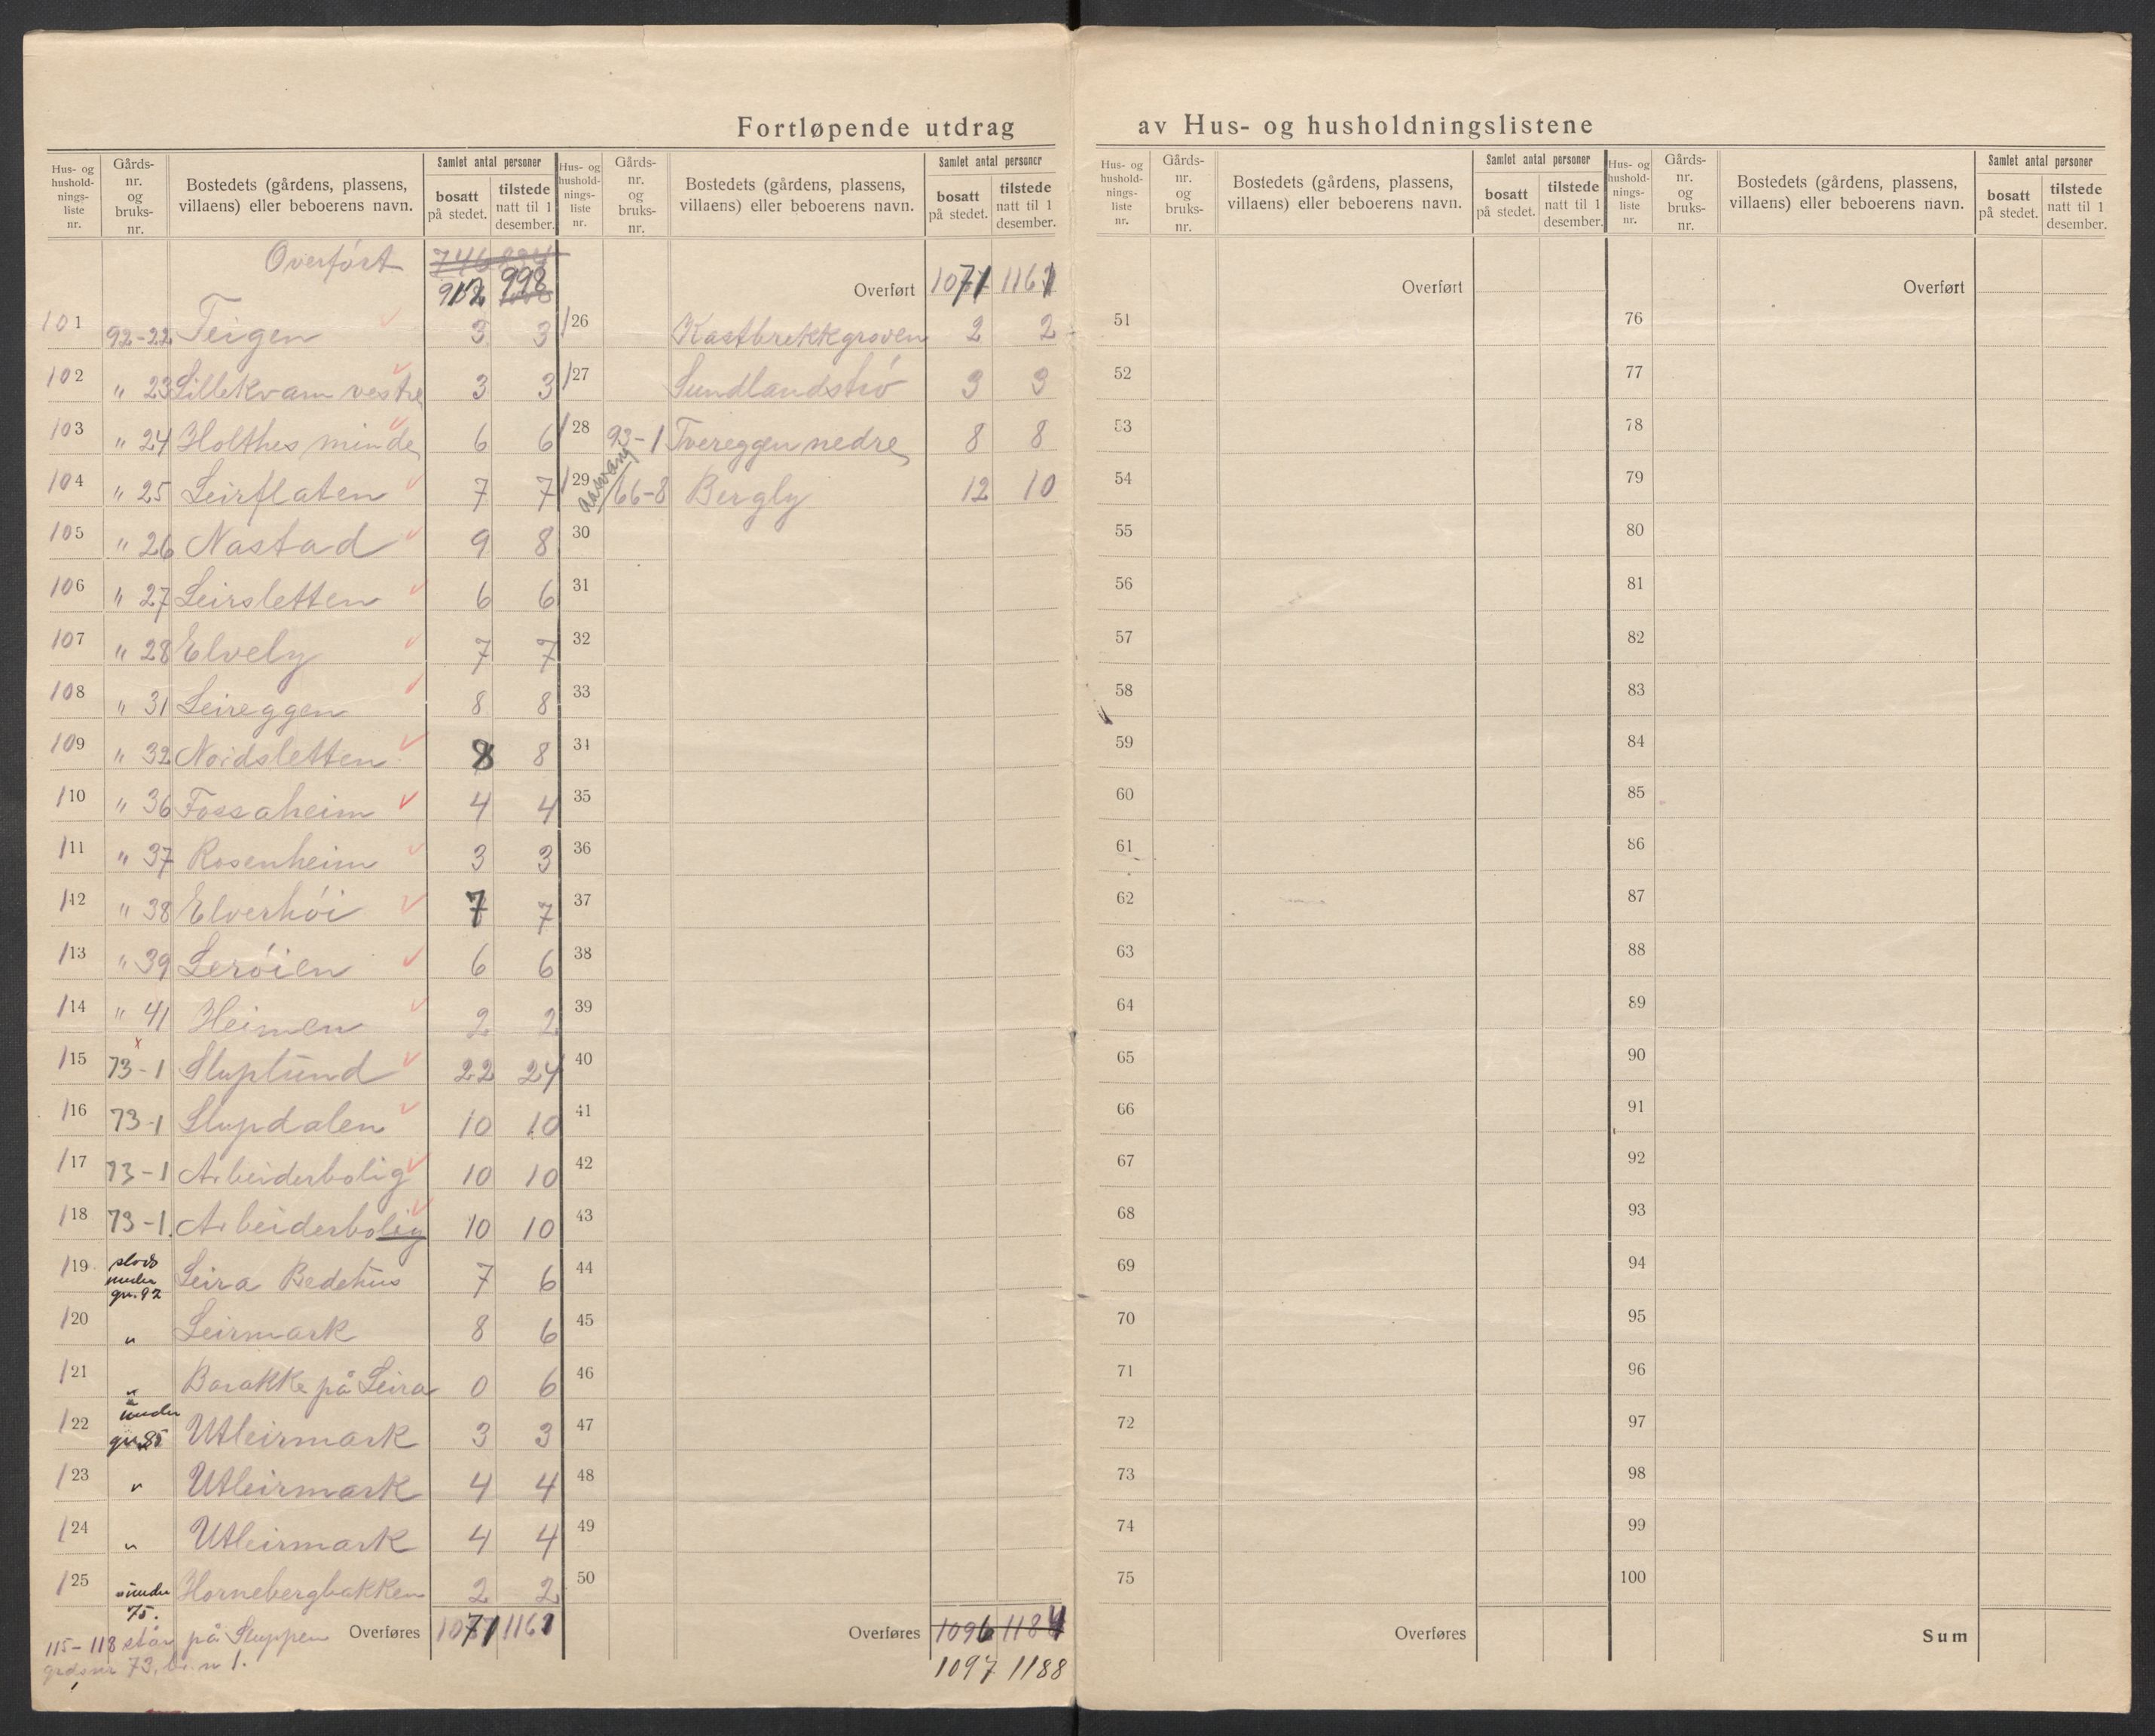 Fortløpende utdrag av Hus- og husholdningslistene
Hus- og hushold-nings-liste nr. Gårds-nr. og bruks-nr. Bostedets (gårdens, plassens, villaens) eller beboerens navn. Samlet antal personer bosatt på stedet. tilstede natt til 1 desember.
Overført 746
912 998
101 92-22 Teigen 3 3
102 " 23 Lillekvam vestre 3 3
103 " 24 Holthes minde 6 6
104 " 25 Leirflaten 7 7
105 " 26 Nastad 9 8
106 " 27 Leirsletten 6 6
107 " 28 Elvely 7 7
108 " 31 Leireggen 8 8
109 " 32 Nordsletten 8 8
110 " 36 Fossaheim 4 4
111 " 37 Rosenheim 3 3
112 " 38 Elverhöi 7 7
113 " 39 Leröien 6 6
114 " 41 Heimen 2 2
115 73-1 Sluplund 22 24
116 73-1 Slupdalen 10 10
117 73-1 Arbeiderbolig 10 10
118 73-1. Arbeiderbolig 10 10
119 under gn. 92 Leira Bedehus 7 6
120 " Leirmark 8 6
121 " Barakke på Leira 0 6
122 under gn. 85 Utleirmark 3 3
123 " Utleirmark 4 4
124 " Utleirmark 4 4
125 under 75. Hornebergbakken 2 2
Overføres 1071 1161
115-118 står på Sluppen
grdsnr 73, br. n 1.
Hus- og hushold-nings-liste nr. Gårds-nr. og bruks-nr. Bostedets (gårdens, plassens, villaens) eller beboerens navn. Samlet antal personer bosatt på stedet. tilstede natt til 1 desember.
Overført 1071 1161
126 Kastbrekkgroven 2 2
127 Sundlandströ 3 3
128 93-1 Tvereggen nedre 8 8
129 Aasvang 66-8 Bergly 12 10
30
31
32
33
34
35
36
37
38
39
40
41
42
43
44
45
46
47
48
49
50
Overføres 1096 1184
1097 1188
Hus- og hushold-nings-liste nr. Gårds-nr. og bruks-nr. Bostedets (gårdens, plassens, villaens) eller beboerens navn. Samlet antal personer bosatt på stedet. tilstede natt til 1 desember.
Overført
51
52
53
54
55
56
57
58
59
60
61
62
63
64
65
66
67
68
69
70
71
72
73
74
75
Overføres
Hus- og hushold-nings-liste nr. Gårds-nr. og bruks-nr. Bostedets (gårdens, plassens, villaens) eller beboerens navn. Samlet antal personer bosatt på stedet. tilstede natt til 1 desember.
Overført
76
77
78
79
80
81
82
83
84
85
86
87
88
89
90
91
92
93
94
95
96
97
98
99
100
Sum